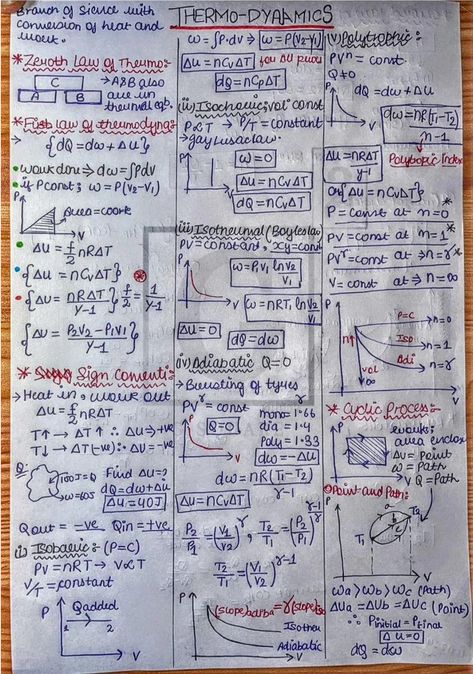 THERMO-DYNAMICS
Branch of Sience with
conversion of heat and
work.
* Zeroth Law of Thermo:-
C
A B
→ A & B also
are in
thermal eqb.
* First law of thermodyna:-
→ {dQ = dω + Δu}
• work done ⇒ dω = ∫Pdv
• if P const; ω = P(V₂-V₁)
P
Area = work
V
• Δu = f/2 nRΔT
• {Δu = nCvΔT}
• {Δu = nRΔT/γ-1} f/2 = 1/γ-1
{Δu = P₂V₂ - P₁V₁/γ-1}
* Sign Conventi:-
→ Heat in, work out
Δu = f/2 nRΔT
T↑ → ΔT↑ ∴ Δu ⇒ +ve
T↓ → ΔT(-ve) ∴ Δu = -ve
Q:-
100J = Q
ω = 60J
Find Δu = ?
dQ = dω + Δu
Δu = 40J
Qout = -ve Qin = +ve
(i) Isobaric:- (P=C)
PV = nRT → V∝T
V/T = constant
P
Q added
1 2
V
ω = ∫P·dv ⇒ ω = P(V₂-V₁)
Δu = nCvΔT
dQ = nCpΔT
(ii) Isochoric; vol const
P∝T → P/T = constant
→ gay Lusac law
P
V
ω = 0
Δu = nCvΔT
dQ = nCvΔT
(iii) Isothermal (Boyles law
PV = constant, xy = const
P
V
ω = P₁V₁ ln V₂/V₁
ω = nRT, ln V₂/V₁
Δu = 0
dQ = dω
(iv) Adiabatic Q = 0
→ Bursting of tyres
PVʳ = const
P
V
Q = 0
mono = 1.66
dia = 1.4
Poly = 1.33
dω = -Δu
dω = nR(T₁-T₂)/γ-1
Δu = nCvΔT
P₂/P₁ = (V₁/V₂)^γ, T₂/T₁ = (P₂/P₁)
T₂/T₁ = (V₁/V₂)^γ-1
P
Isother
Adiabatic
V
(v) Polytrophic:-
PVⁿ = const
Q ≠ 0
P
V
dQ = dω + Δu
dω = nR(T₁-T₂)/n-1
Polytropic Index
Δu = nRΔT/γ-1
OR {Δu = nCvΔT}
P = const at n = 0
PV = const at n = 1
PVʳ = const at n = γ
V = const at n = ∞
P
P=C n=0
Iso n=1
Adi n=γ
n↑
vol
∞
V
* Cyclic Process:-
P
V
work =
area enclos
Δu = Point
ω = Path
Q = Path
Point and Path:-
P
T₁
T₂
a
b
c
V
ωa > ωb > ωc (Path)
Δua = Δub = Δuc (Point)
∴ Pinitial = Pfinal
Δu = 0
dQ = dω